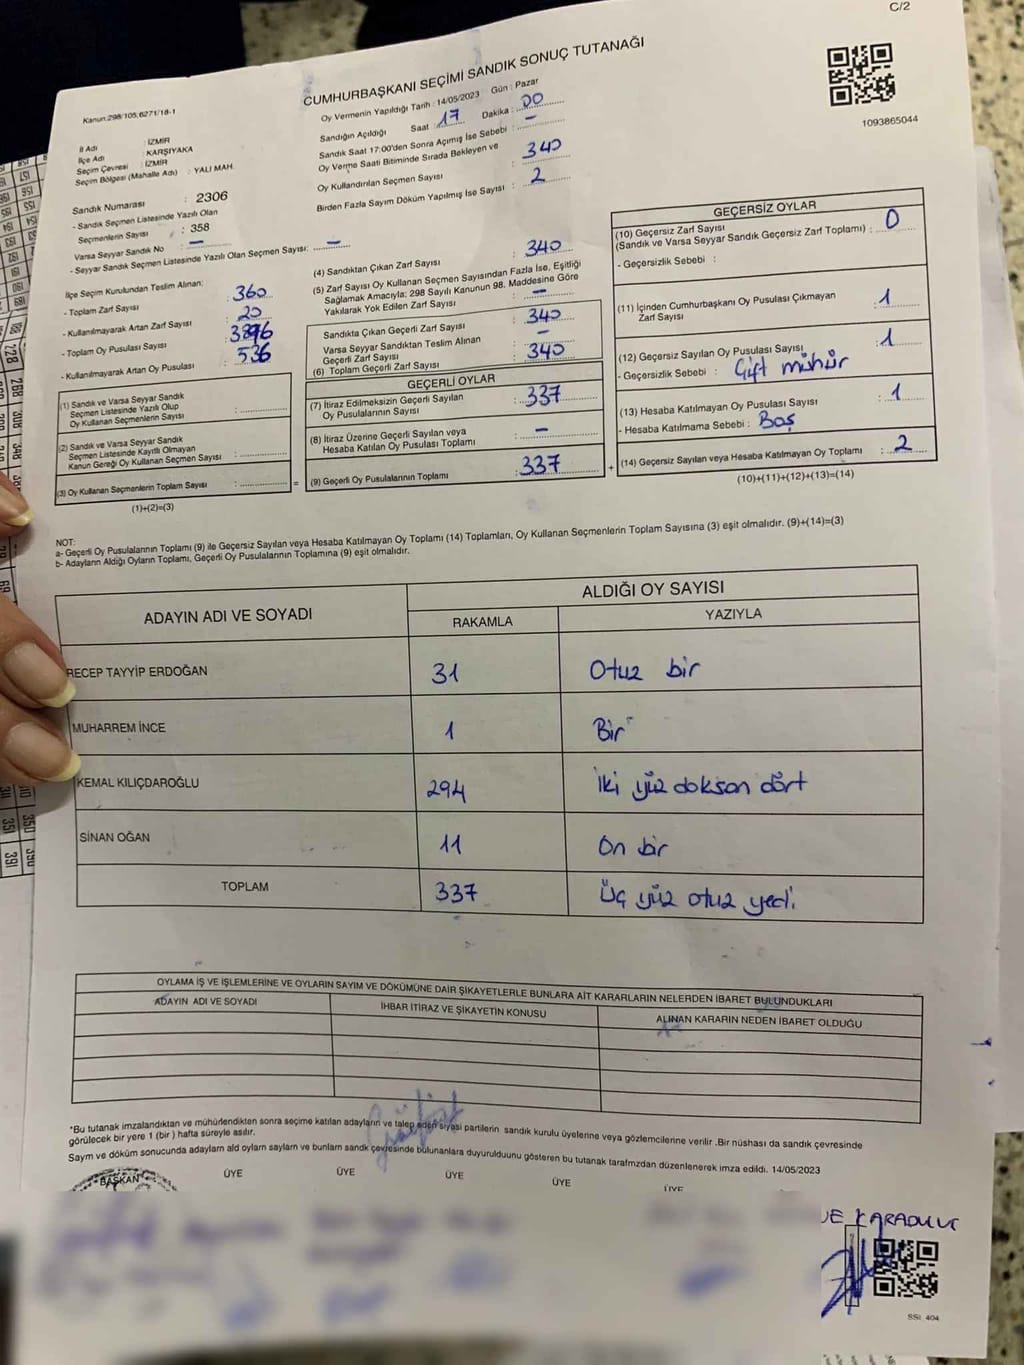 C/2
CUMHURBAŞKANI SEÇİMİ SANDIK SONUÇ TUTANAĞI
Kanun:298/105,6271/18-1
1093865044
İl Adı : İZMİR
İlçe Adı : KARŞIYAKA
Seçim Çevresi : İZMİR
Seçim Bölgesi (Mahalle Adı) : YALI MAH.
Sandık Numarası : 2306
- Sandık Seçmen Listesinde Yazılı Olan
Seçmenlerin Sayısı : 358
Varsa Seyyar Sandık No : —
- Seyyar Sandık Seçmen Listesinde Yazılı Olan Seçmen Sayısı: —
Oy Vermenin Yapıldığı Tarih : 14/05/2023 Gün : Pazar
Sandığın Açıldığı Saat : 17 Dakika : 00
Sandık Saat 17:00'den Sonra Açımış İse Sebebi :
Oy Verme Saati Bitiminde Sırada Bekleyen ve
Oy Kullandırılan Seçmen Sayısı : 340
Birden Fazla Sayım Döküm Yapılmış İse Sayısı : 2
İlçe Seçim Kurulundan Teslim Alınan:
- Toplam Zarf Sayısı : 360
- Kullanılmayarak Artan Zarf Sayısı : 20
- Toplam Oy Pusulası Sayısı :
- Kullanılmayarak Artan Oy Pusulası : 536
(1) Sandık ve Varsa Seyyar Sandık
Seçmen Listesinde Yazılı Olup
Oy Kullanan Seçmenlerin Sayısı :
(2) Sandık ve Varsa Seyyar Sandık
Seçmen Listesinde Kayıtlı Olmayan
Kanun Gereği Oy Kullanan Seçmen Sayısı :
(3) Oy Kullanan Seçmenlerin Toplam Sayısı : =
(1)+(2)=(3)
(4) Sandıktan Çıkan Zarf Sayısı : 340
(5) Zarf Sayısı Oy Kullanan Seçmen Sayısından Fazla İse, Eşitliği
Sağlamak Amacıyla; 298 Sayılı Kanunun 98. Maddesine Göre
Yakılarak Yok Edilen Zarf Sayısı : —
Sandıkta Çıkan Geçerli Zarf Sayısı : 340
Varsa Seyyar Sandıktan Teslim Alınan
Geçerli Zarf Sayısı : —
(6) Toplam Geçerli Zarf Sayısı : 340
GEÇERLİ OYLAR
(7) İtiraz Edilmeksizin Geçerli Sayılan
Oy Pusulalarının Sayısı : 337
(8) İtiraz Üzerine Geçerli Sayılan veya
Hesaba Katılan Oy Pusulası Toplamı : —
(9) Geçerli Oy Pusulalarının Toplamı : 337 +
GEÇERSİZ OYLAR
(10) Geçersiz Zarf Sayısı
(Sandık ve Varsa Seyyar Sandık Geçersiz Zarf Toplamı) : 0
- Geçersizlik Sebebi :
(11) İçinden Cumhurbaşkanı Oy Pusulası Çıkmayan
Zarf Sayısı : 1
(12) Geçersiz Sayılan Oy Pusulası Sayısı : 1
- Geçersizlik Sebebi : Çift mühür
(13) Hesaba Katılmayan Oy Pusulası Sayısı : 1
- Hesaba Katılmama Sebebi : Boş
(14) Geçersiz Sayılan veya Hesaba Katılmayan Oy Toplamı : 2
(10)+(11)+(12)+(13)=(14)
NOT:
a- Geçerli Oy Pusulalarının Toplamı (9) ile Geçersiz Sayılan veya Hesaba Katılmayan Oy Toplamı (14) Toplamları, Oy Kullanan Seçmenlerin Toplam Sayısına (3) eşit olmalıdır. (9)+(14)=(3)
b- Adayların Aldığı Oyların Toplamı, Geçerli Oy Pusulalarının Toplamına (9) eşit olmalıdır.
ADAYIN ADI VE SOYADI ALDIĞI OY SAYISI
RAKAMLA YAZIYLA
RECEP TAYYİP ERDOĞAN 31 Otuz bir
MUHARREM İNCE 1 Bir
KEMAL KILIÇDAROĞLU 294 İki yüz doksan dört
SİNAN OĞAN 11 On bir
TOPLAM 337 Üç yüz otuz yedi
OYLAMA İŞ VE İŞLEMLERİNE VE OYLARIN SAYIM VE DÖKÜMÜNE DAİR ŞİKAYETLERLE BUNLARA AİT KARARLARIN NELERDEN İBARET BULUNDUKLARI
ADAYIN ADI VE SOYADI İHBAR İTİRAZ VE ŞİKAYETİN KONUSU ALINAN KARARIN NEDEN İBARET OLDUĞU
*Bu tutanak imzalandıktan ve mühürlendikten sonra seçime katılan adayların ve talep eden siyasi partilerin sandık kurulu üyelerine veya gözlemcilerine verilir .Bir nüshası da sandık çevresinde
görülecek bir yere 1 (bir ) hafta süreyle asılır.
Sayım ve döküm sonucunda adayların ald oyların sayların ve bunların sandk çevresinde bulunanlara duyurulduunu gösteren bu tutanak tarafmzdan düzenlenerek imza edildi. 14/05/2023
BAŞKAN ÜYE ÜYE ÜYE ÜYE ÜYE
KARABULUT
SSI 404